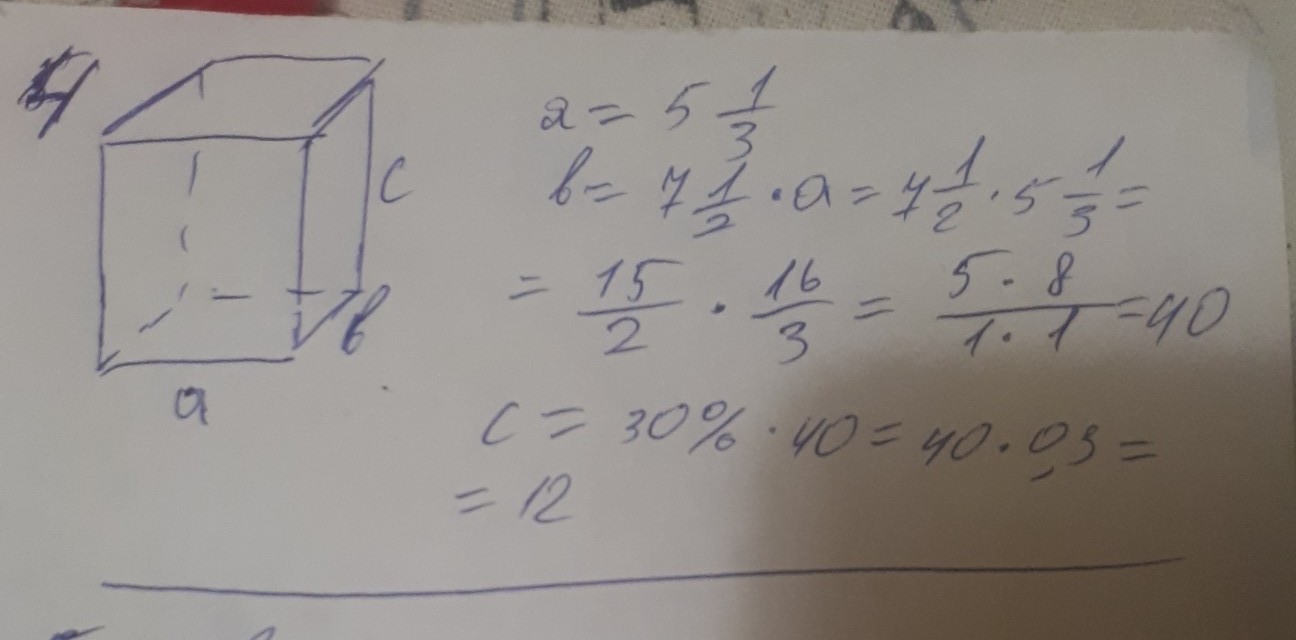 4
a = 5 1/3
b = 7 1/2 · a = 7 1/2 · 5 1/3 =
= 15/2 · 16/3 = 5 · 8 / 1 · 1 = 40
c
b
a
c = 30% · 40 = 40 · 0,3 =
= 12